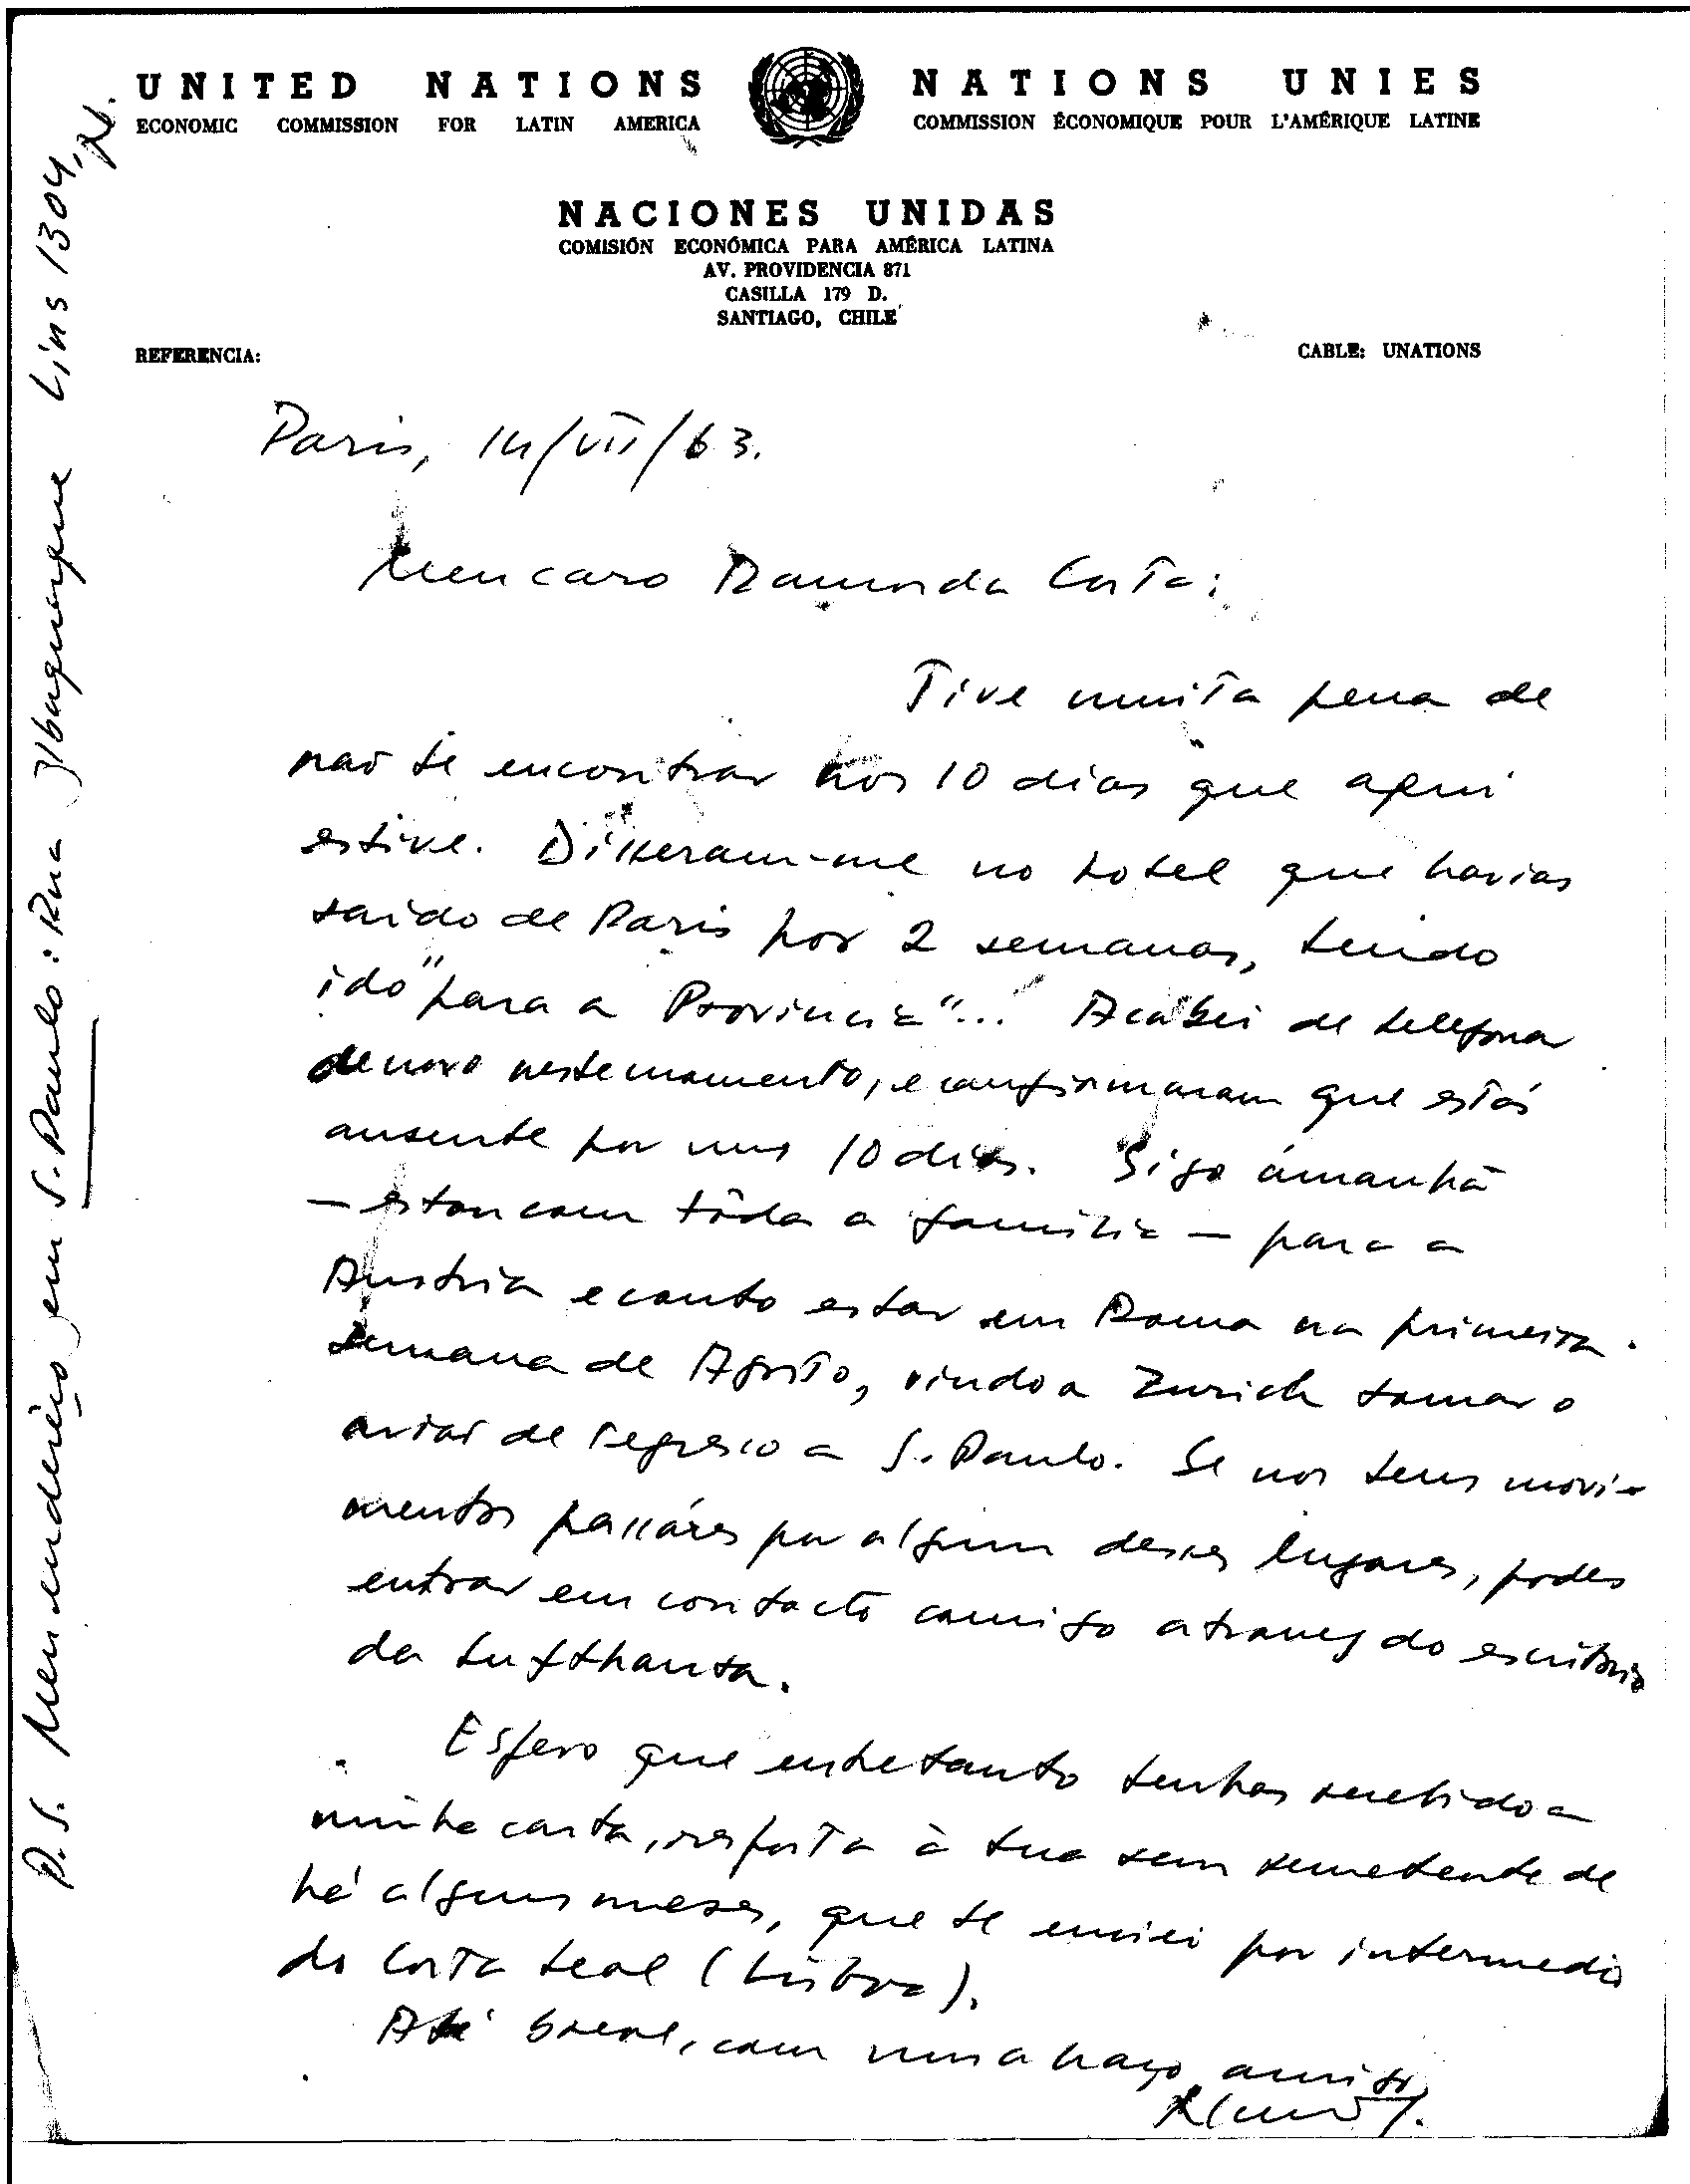 UNITED NATIONS
ECONOMIC COMMISSION FOR LATIN AMERICA
NATIONS UNIES
COMMISSION ÉCONOMIQUE POUR L'AMÉRIQUE LATINE
NACIONES UNIDAS
COMISIÓN ECONÓMICA PARA AMÉRICA LATINA
AV. PROVIDENCIA 871
CASILLA 179 D.
SANTIAGO, CHILE
REFERENCIA:
CABLE: UNATIONS
Paris, 14/VII/63.
Meu caro Ramos da Costa:
Tive muita pena de
não te encontrar nos 10 dias que aqui
estive. Disseram-me no hotel que havias
saido de Paris por 2 semanas, tendo
ido "para a Provincia"... Acabei de telefonar
de novo neste momento, e confirmaram que estás
ausente por uns 10 dias. Sigo ámanhã
– estou com tôda a familia – para a
Austria e conto estar em Roma na primeira
semana de Agosto, vindo a Zurich tomar o
avião de regresso a S. Paulo. Se nos teus movi-
mentos passáres por algum desses lugares, podes
entrar em contacto comigo atravez do escritorio
da Lufthansa.
Espero que entretanto tenhas recebido a
minha carta, resposta à tua sem remetente de
há alguns meses, que te enviei por intermedio
do Costa Leal (Lisboa).
Até breve, com um abraço amigo
P.S. Meu endereço em S. Paulo: Rua Albuquerque Lins 1304,